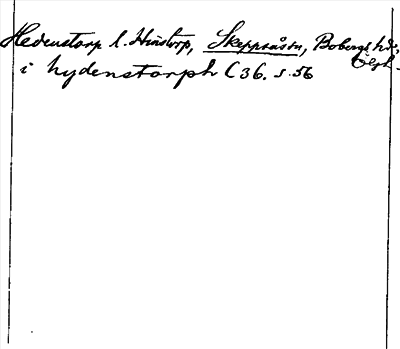 Hedenstorp l. Hinstorp, Skeppsås sn, Bobergs hd,
Ögtl.
i hydenstorph C 36. s. 56